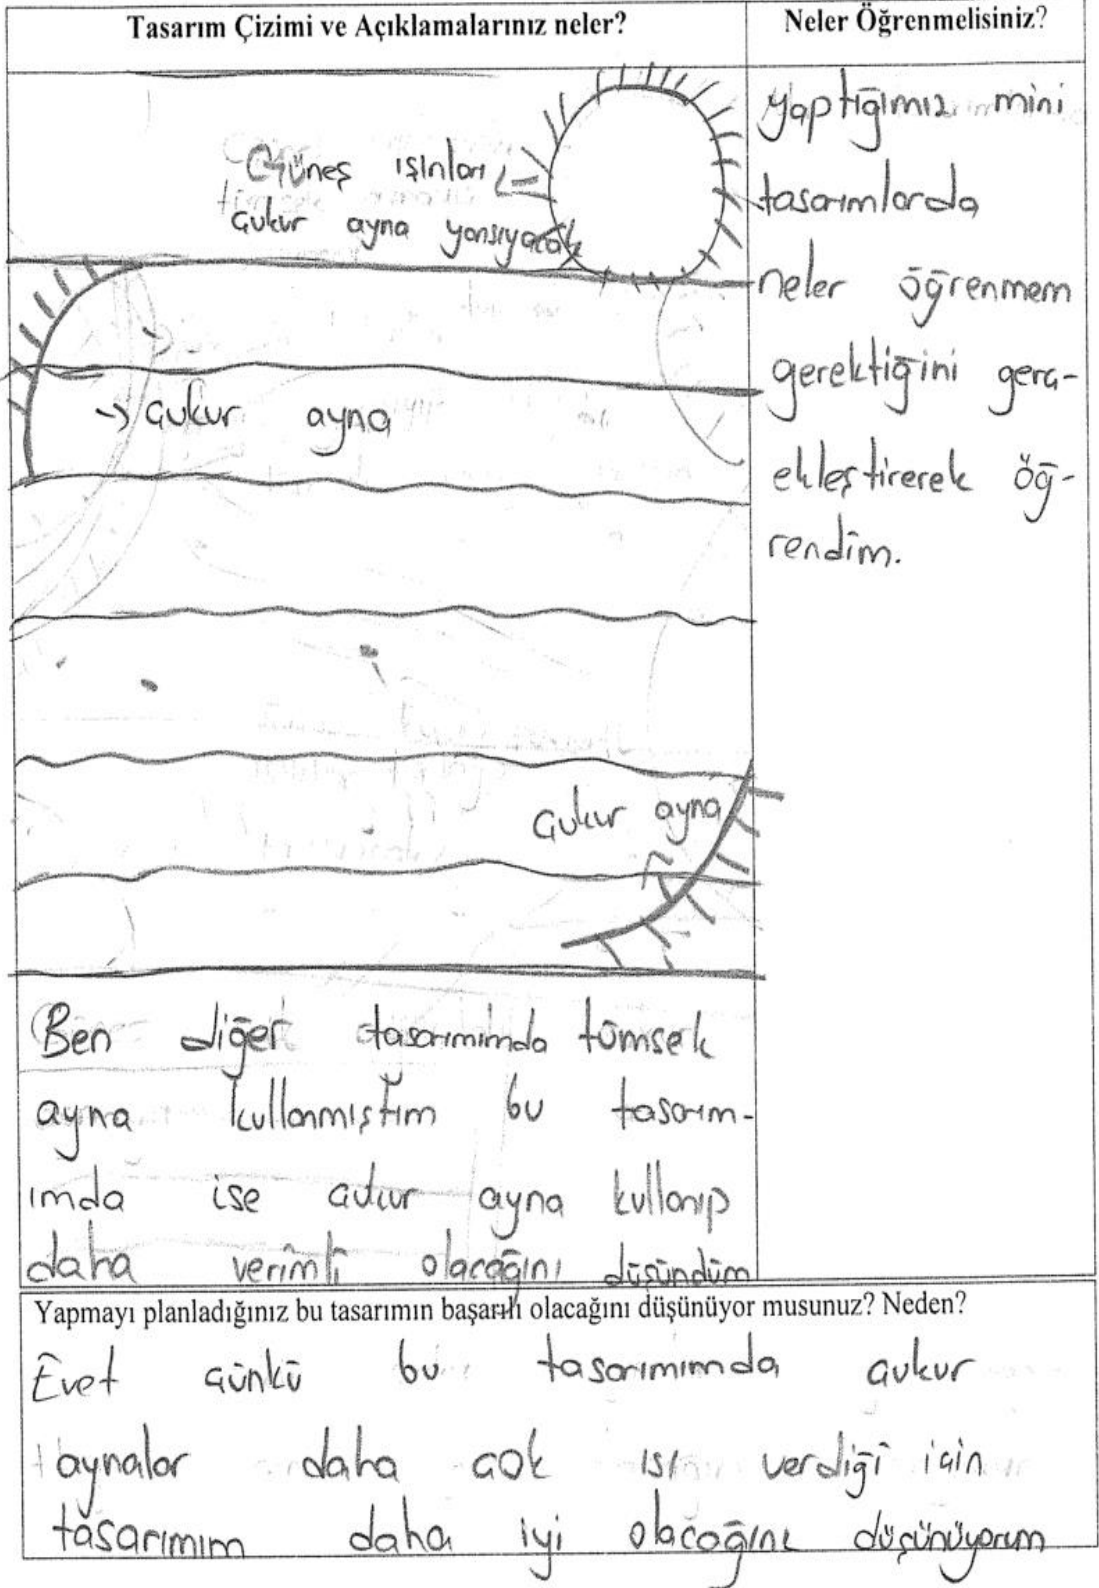 Tasarım Çizimi ve Açıklamalarınız neler?
Güneş ışınları
çukur ayna yansıyacak
→ çukur ayna
çukur ayna
Ben diğer tasarımımda tümsek
ayna kullanmıştım bu tasarım-
ımda ise çukur ayna kullanıp
daha verimli olacağını düşündüm
Neler Öğrenmelisiniz?
yaptığımız mini
tasarımlarda
neler öğrenmem
gerektiğini gerç-
ekleştirerek öğ-
rendim.
Yapmayı planladığınız bu tasarımın başarılı olacağını düşünüyor musunuz? Neden?
Evet çünkü bu tasarımımda çukur
aynalar daha çok ısı verdiği için
tasarımım daha iyi olacağını düşünüyorum